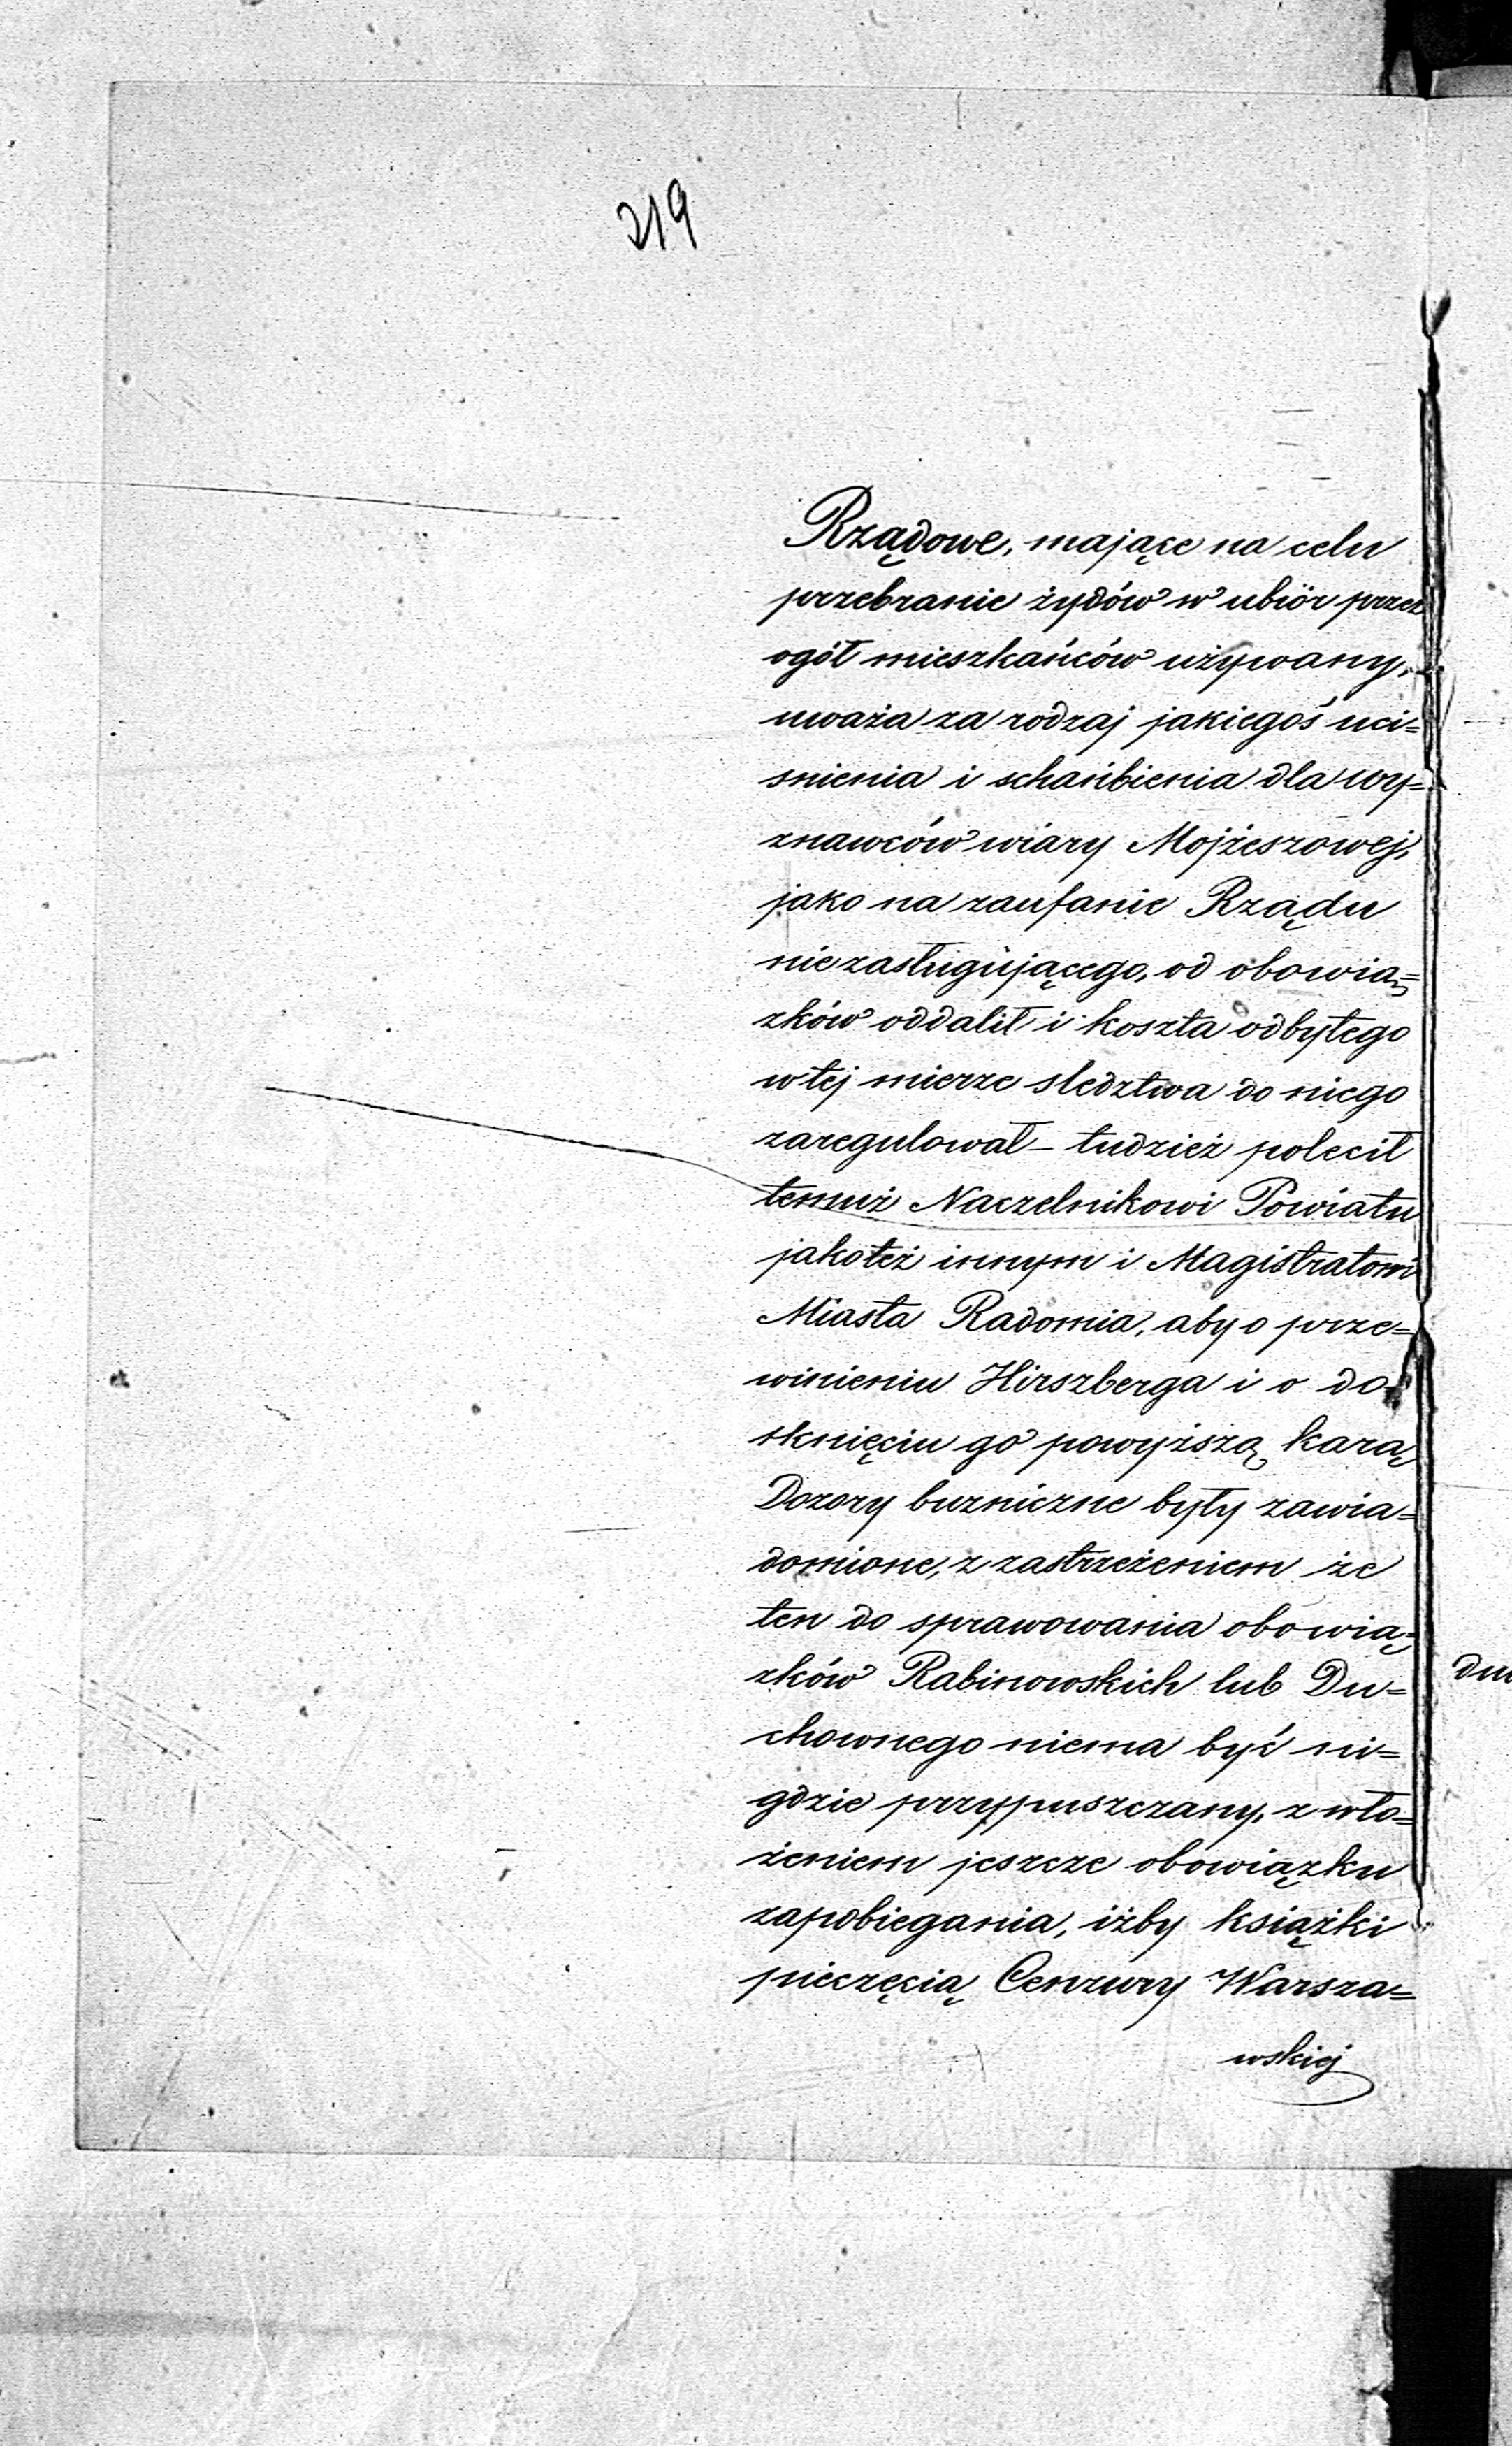 219
Rządowe, mające na celu
przebranie żydów w ubiór przez
ogół mieszkańców używany,
uważa za rodzaj jakiegoś uci=
snienia i schańbienia dla wy=
znawców wiary Mojżeszowej,
jako na zaufanie Rządu
niezasługującego, od obowią=
zków oddalił i koszta odbytego
w tej mierze sledztwa do niego
zaregulował – tudzież polecił
temuż Naczelnikowi Powiatu
jakoteż innym i Magistratowi
Miasta Radomia, aby o prze=
winieniu Hirszberga i o do=
tknięciu go powyższą karą
Dozory buzniczne były zawia=
domione, z zastrzeżeniem że
ten do sprawowania obowią=
zków Rabinowskich lub Du=
chownego niema być ni=
gdzie przypuszczany, z wło=
żeniem jeszcze obowiązku
zapobiegania, iżby książki
pieczęcią Cenzury Warsza=
wskiej